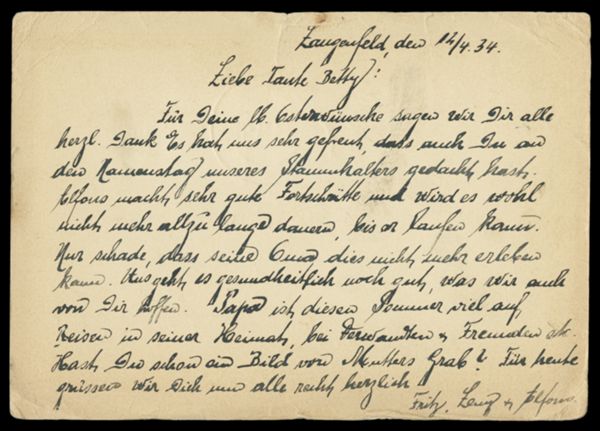 Langenfeld, den 12/4.34.
Liebe Tante Betty!
Für Deine lb. Osterwünsche sagen wir Dir alle
herzl. Dank Es hat uns sehr gefreut, dass auch Du an
den Namenstag unseres Stammhalters gedacht hast.
Alfons macht sehr gute Fortschritte und wird es wohl
nicht mehr allzu lange dauern, bis er laufen kann.
Nur schade, dass seine Oma dies nicht mehr erleben
kann. Uns geht es gesundheitlich noch gut, was wir auch
von Dir hoffen. Papa ist diesen Sommer viel auf
Reisen in seiner Heimat, bei Verwandten & Freunden etc.
Hast Du schon ein Bild von Mutters Grab? Für heute
grüssen wir Dich nun alle recht herzlich
Fritz, & Alfons.